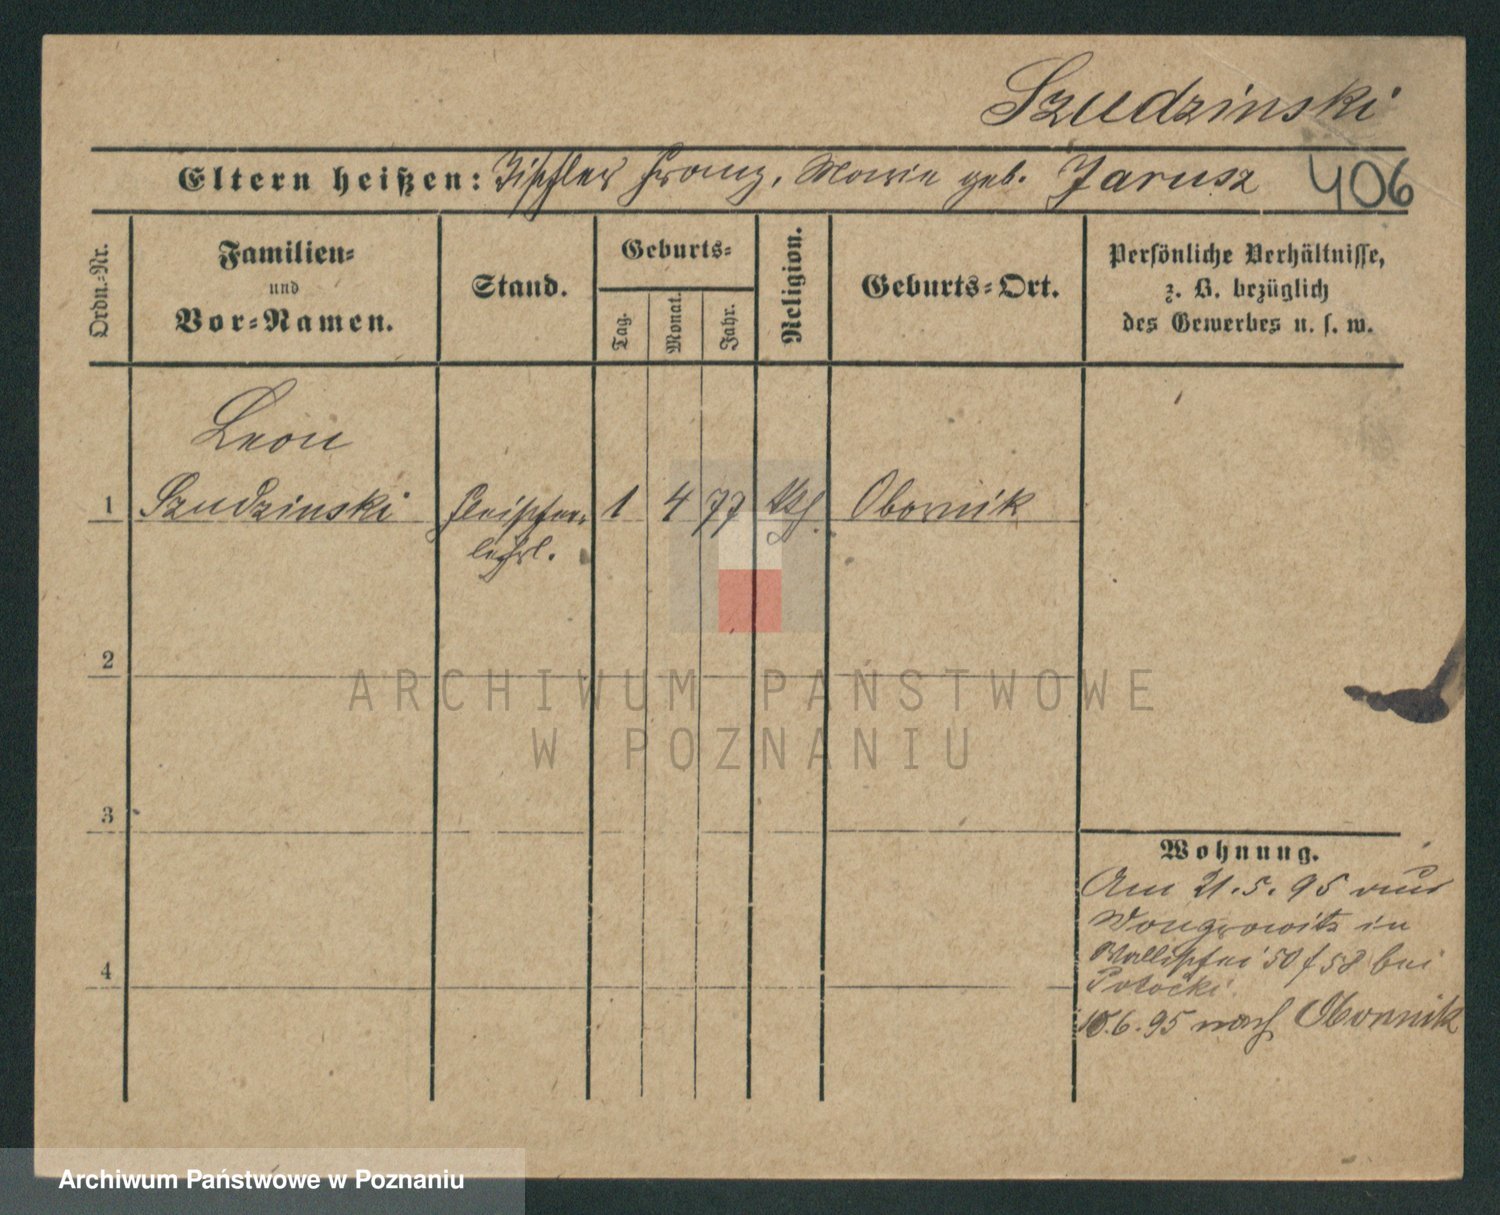 Szudzinski
Eltern heißen: Tischler Franz, Marie geb. Jarusz
406
Ordn.-Nr.
Familien-
und
Vor-Namen.
Stand.
Geburts-
Tag.
Monat.
Jahr.
Religion.
Geburts-Ort.
Persönliche Verhältnisse,
z. B. bezüglich
des Gewerbes u. s. w.
Leon
1 Szudzinski Fleischer- 1 4 77 kth. Obornik
lehrl.
2
3
4
Wohnung.
Am 21.5.95 aus
Wongrowitz in
Wallischei 50/58 bei
Potocki
10.6.95 nach Obornik
ARCHIWUM PAŃSTWOWE
W POZNANIU
Archiwum Państwowe w Poznaniu